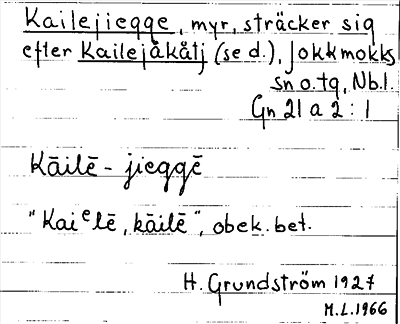 Kailejiegge, myr, sträcker sig
efter Kailejåkåtj (se d.), Jokkmokks
sn o. tg, Nb. l.
Gn 21 a 2 : 1
Kāilē - jieggē
"Kaiᵉlē, kāilē", obek. bet.
H. Grundström 1927
M.L. 1966